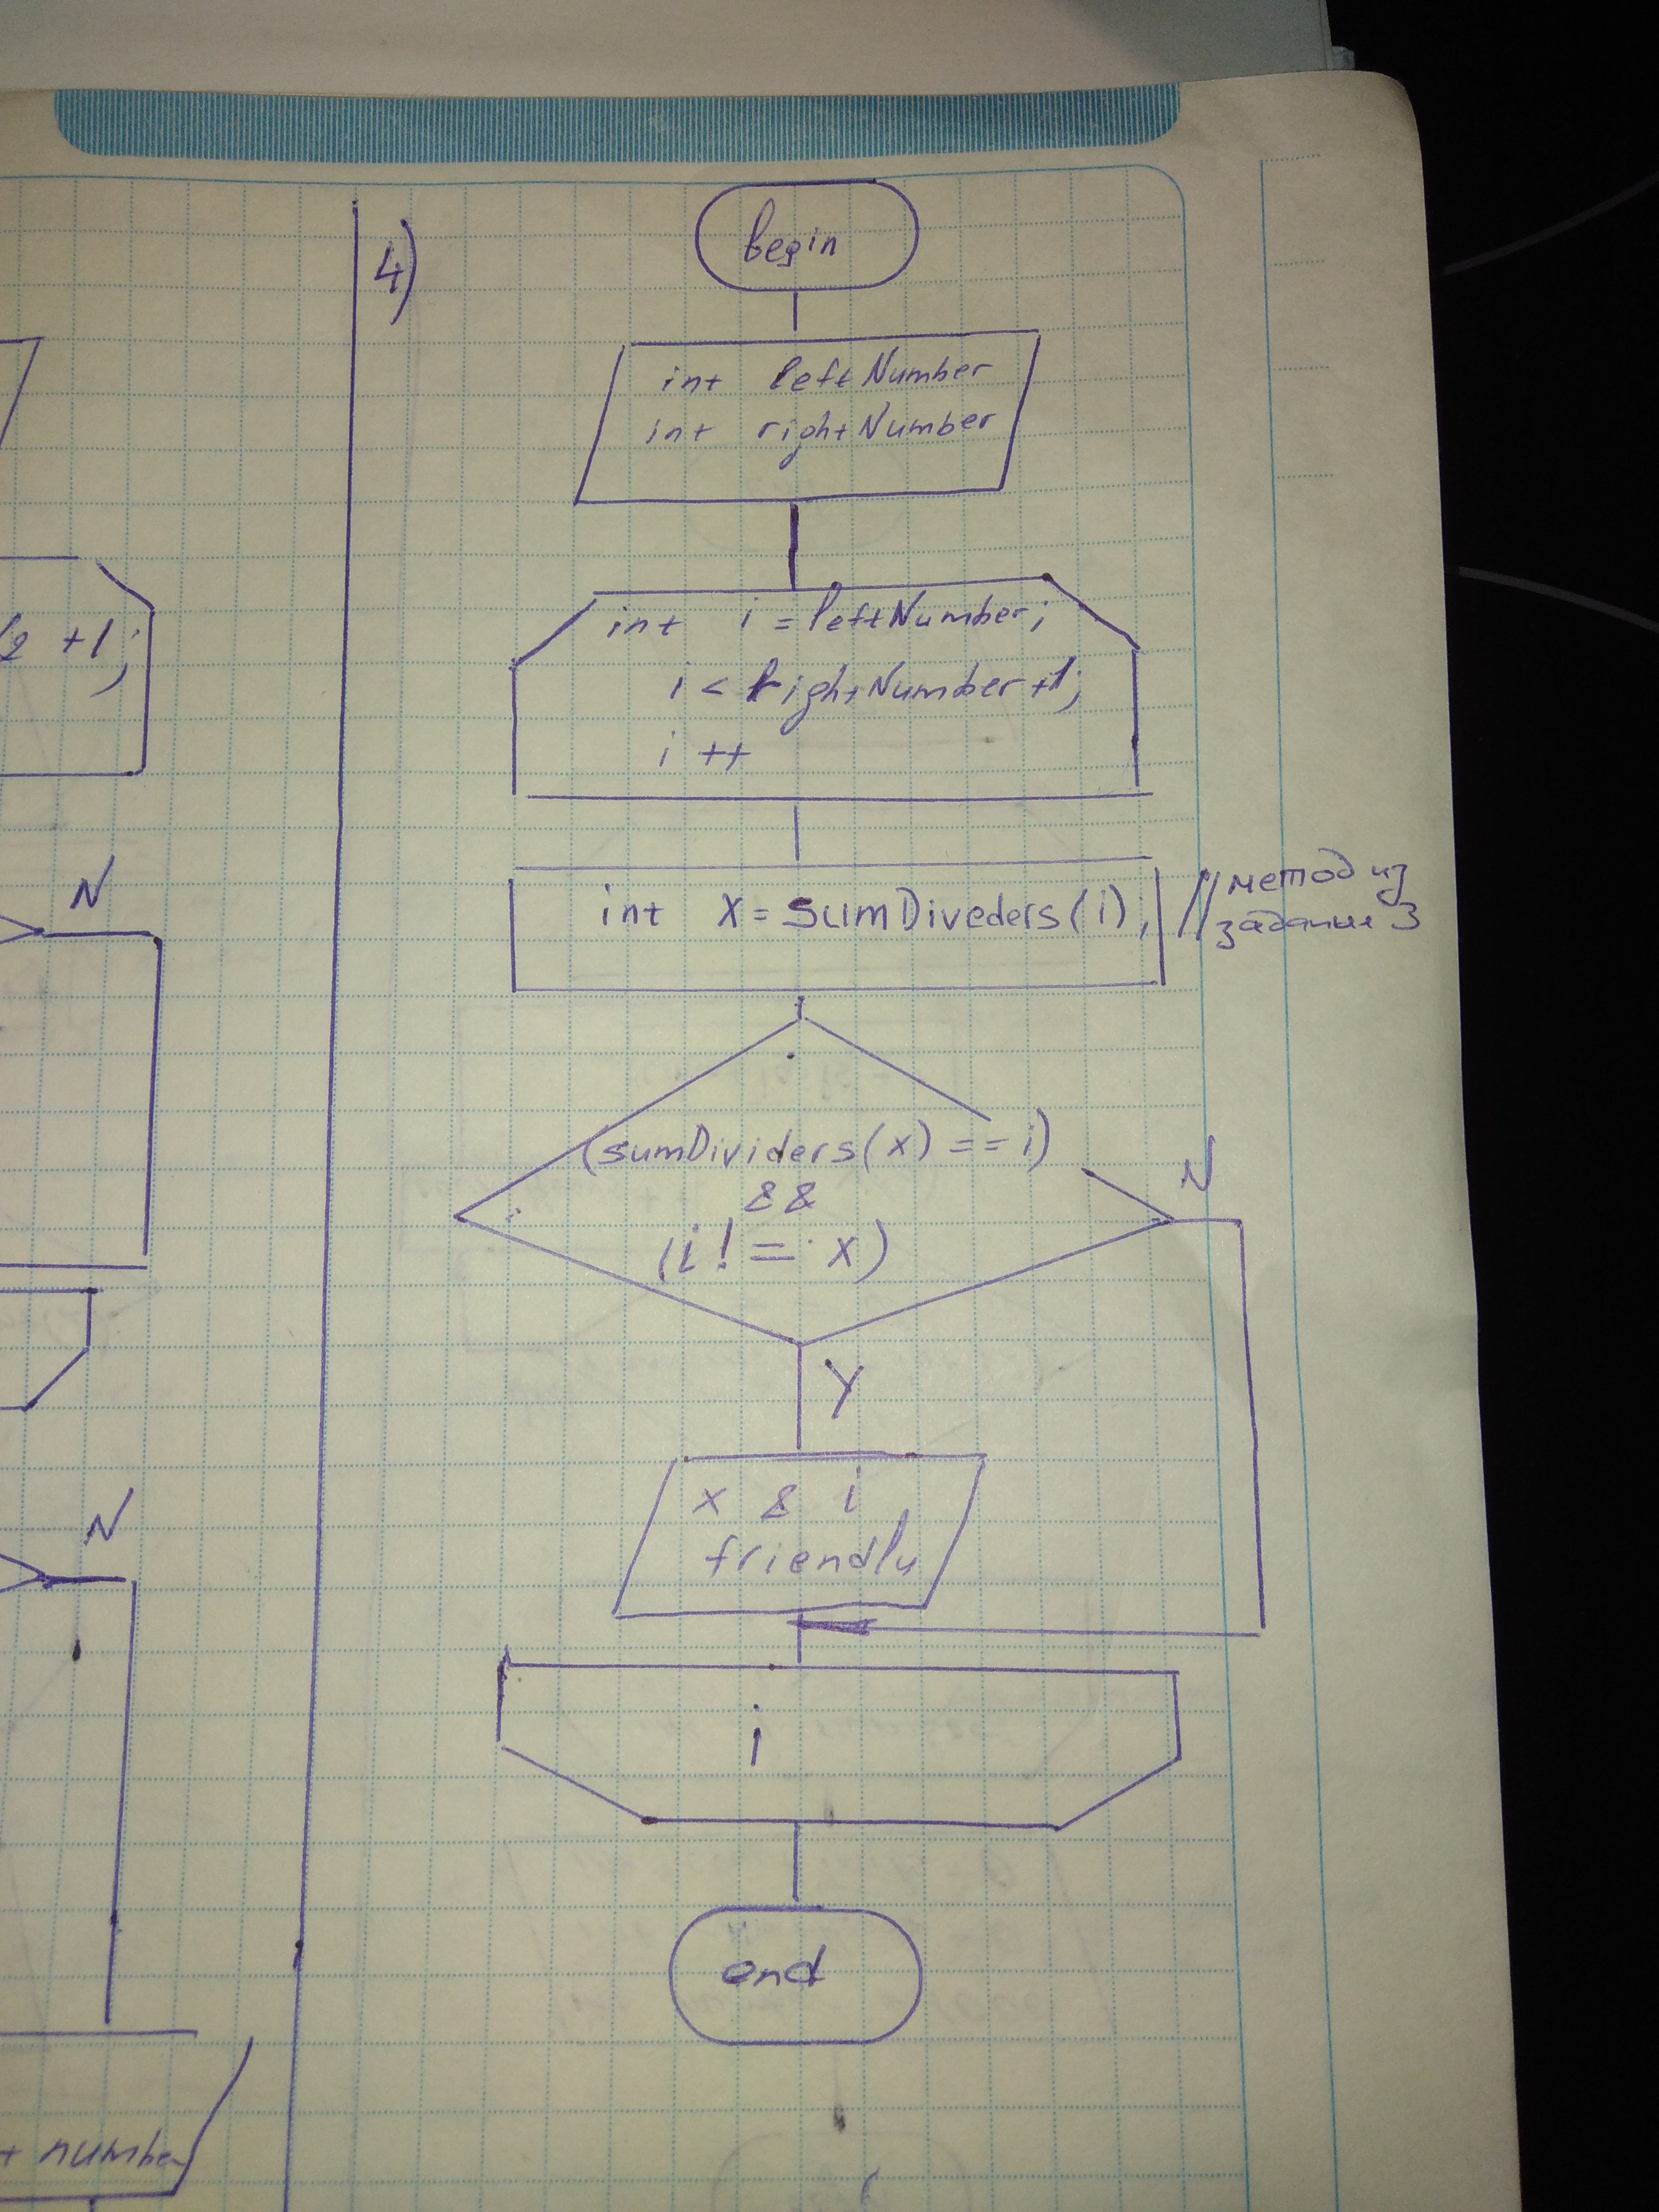 /2 +1;
N
N
+ number
4)
begin
int leftNumber
int rightNumber
int i = leftNumber;
i < rightNumber +1;
i ++
int x = sumDiveders(i); // метод из
задания 3
(sumDividers(x) == i)
&&
(i != x)
N
Y
x & i
friendly
i
end